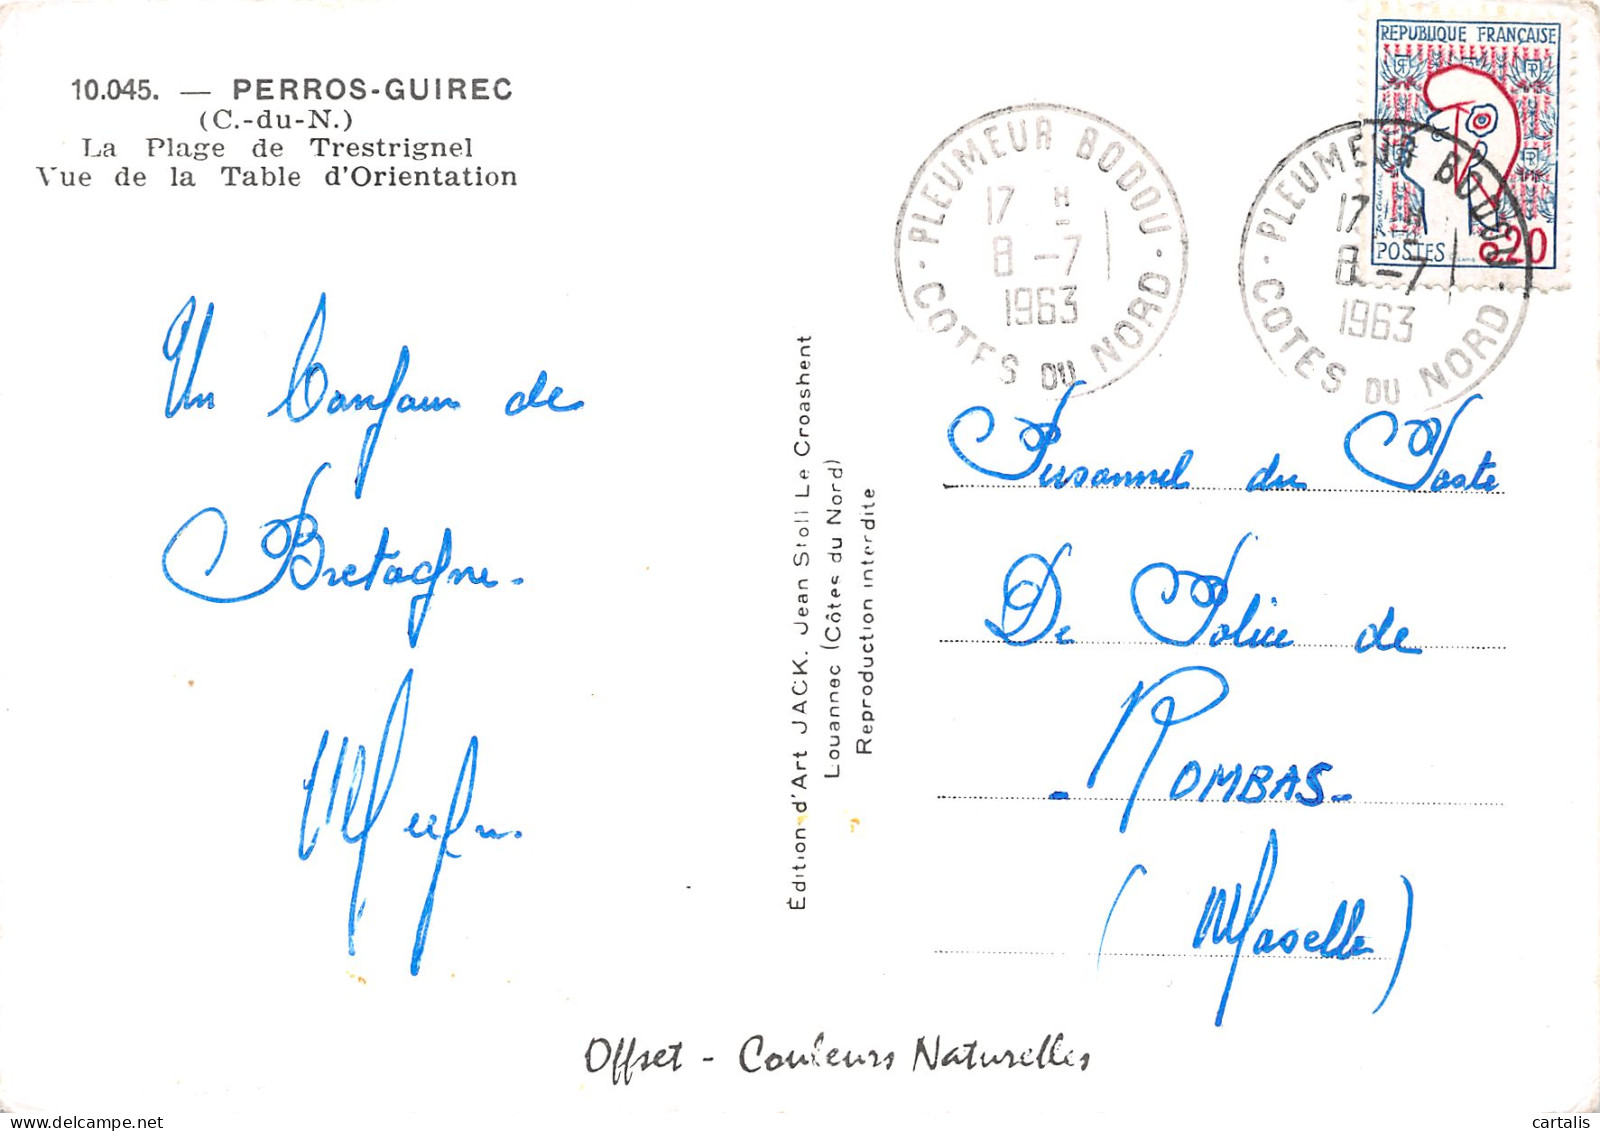 10.045. — PERROS-GUIREC
(C.-du-N.)
La Plage de Trestrignel
Vue de la Table d'Orientation
Un Bonjour de
Bretagne.
Édition d'Art JACK. Jean Stoll Le Croashent
Louannec (Côtes du Nord)
Reproduction interdite
PLEUMEUR BODOU
17 H
8 -7
1963
COTES DU NORD
PLEUMEUR BODOU
17 H
8 -7
1963
COTES DU NORD
REPUBLIQUE FRANÇAISE
RF
POSTES
0,20
Personnel du Poste
De Police de
- ROMBAS -
(Moselle)
Offset - Couleurs Naturelles
delcampe.net
cartalis